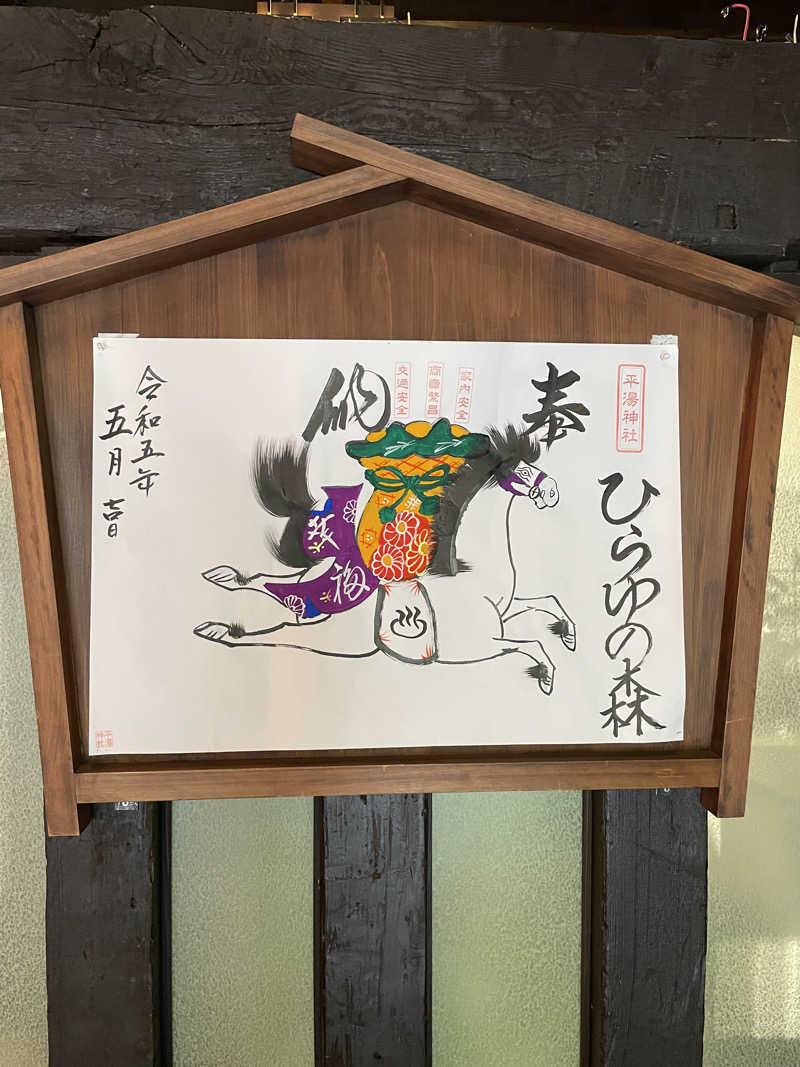 平湯神社
ひらゆの森
奉
家内安全
商賣繁昌
交通安全
納
福
令和五年
五月 吉日
平湯
神社